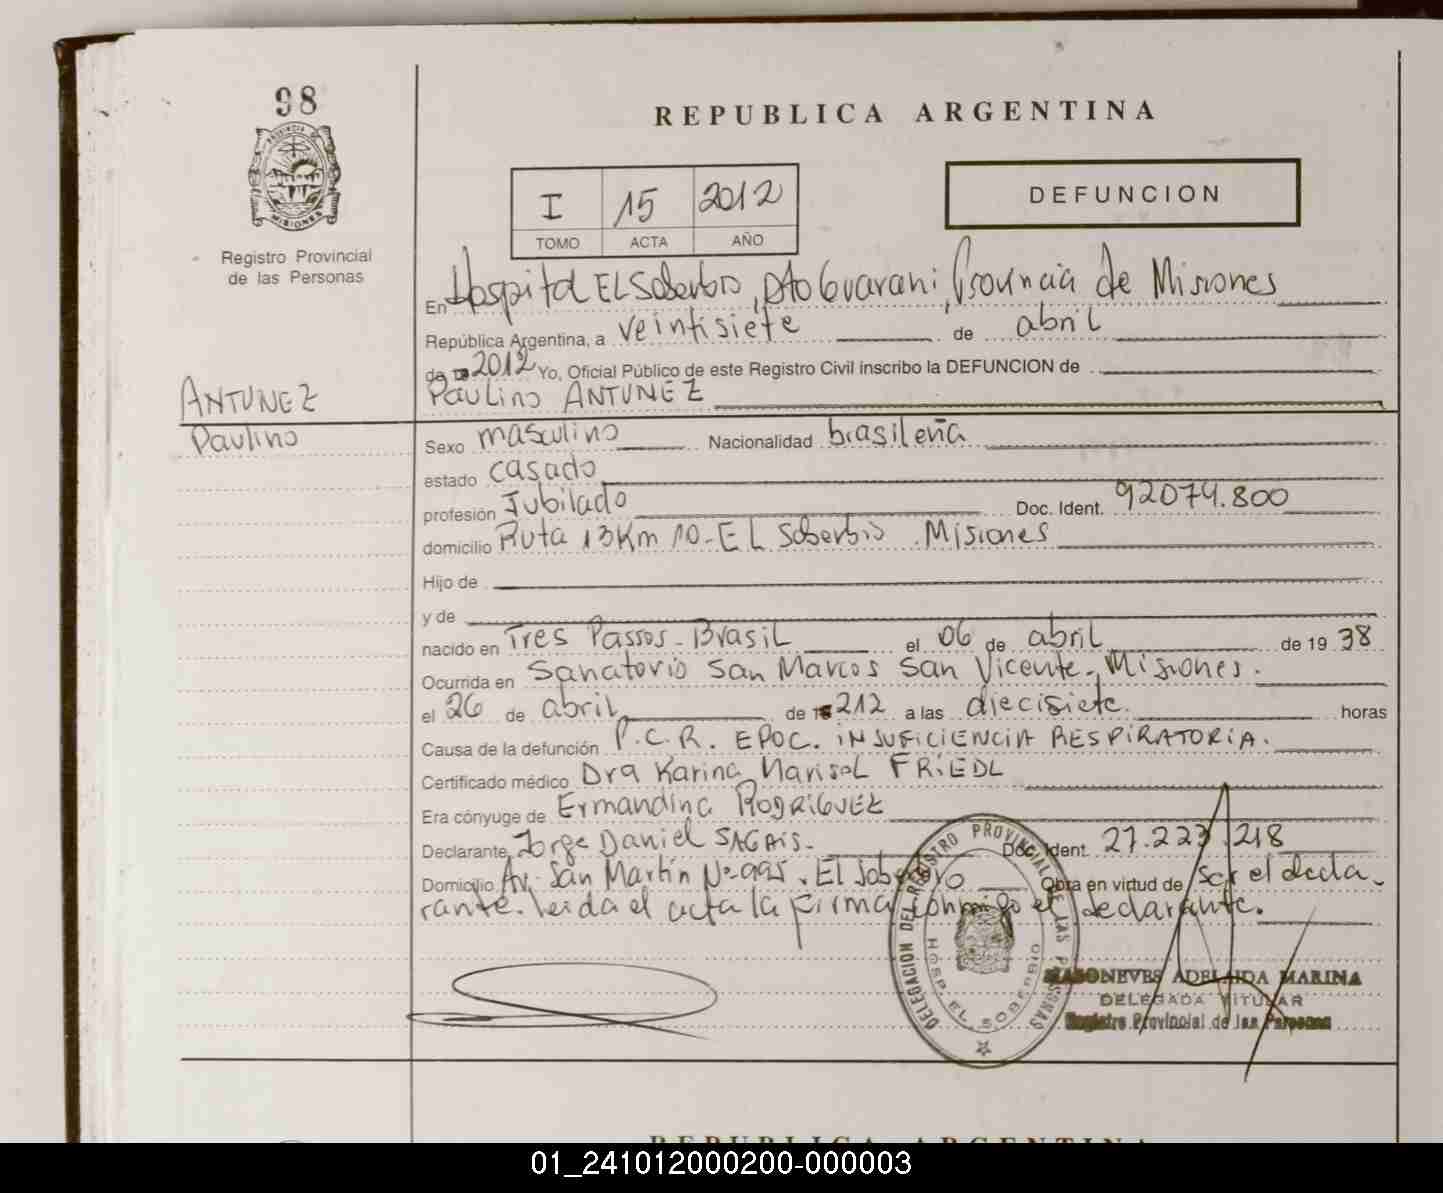 98
REPUBLICA ARGENTINA
PROVINCIA
MISIONES
Registro Provincial
de las Personas
I 15 2012
TOMO ACTA AÑO
DEFUNCION
En Hospital EL Soberbio, Dto Guarani, Provincia de Misiones
República Argentina, a veintisiete de abril
de 2012 Yo, Oficial Público de este Registro Civil inscribo la DEFUNCION de
ANTUNEZ
Paulino ANTUNEZ
Paulino
Sexo masculino Nacionalidad brasileña
estado casado
profesión Jubilado Doc. Ident. 92074.800
domicilio Ruta 13 Km 10 - EL Soberbio . Misiones
Hijo de
y de
nacido en Tres Passos - Brasil el 06 de abril de 19 38
Ocurrida en Sanatorio San Marcos San Vicente, Misiones.
el 26 de abril de 212 a las diecisiete. horas
Causa de la defunción P.C.R. EPOC. INSUFICIENCIA RESPIRATORIA.
Certificado médico Dra Karina Marisol FRIEDL
Era cónyuge de Ermandina RODRIGUEZ
Declarante Jorge Daniel SAGAIS. Doc. Ident. 27.223.218
Domicilio Av. San Martín Nº 995. El Soberbio Obra en virtud de ser el decla-
rante. Leida el acta la firma conmigo el declarante.
DELEGACION DEL REGISTRO PROVINCIAL DE LAS PERSONAS
HOSP. EL SOBERBIO
ADELAIDA MARINA
DELEGADA TITULAR
Registro Provincial de las Personas
REPUBLICA ARGENTINA
01_241012000200-000003